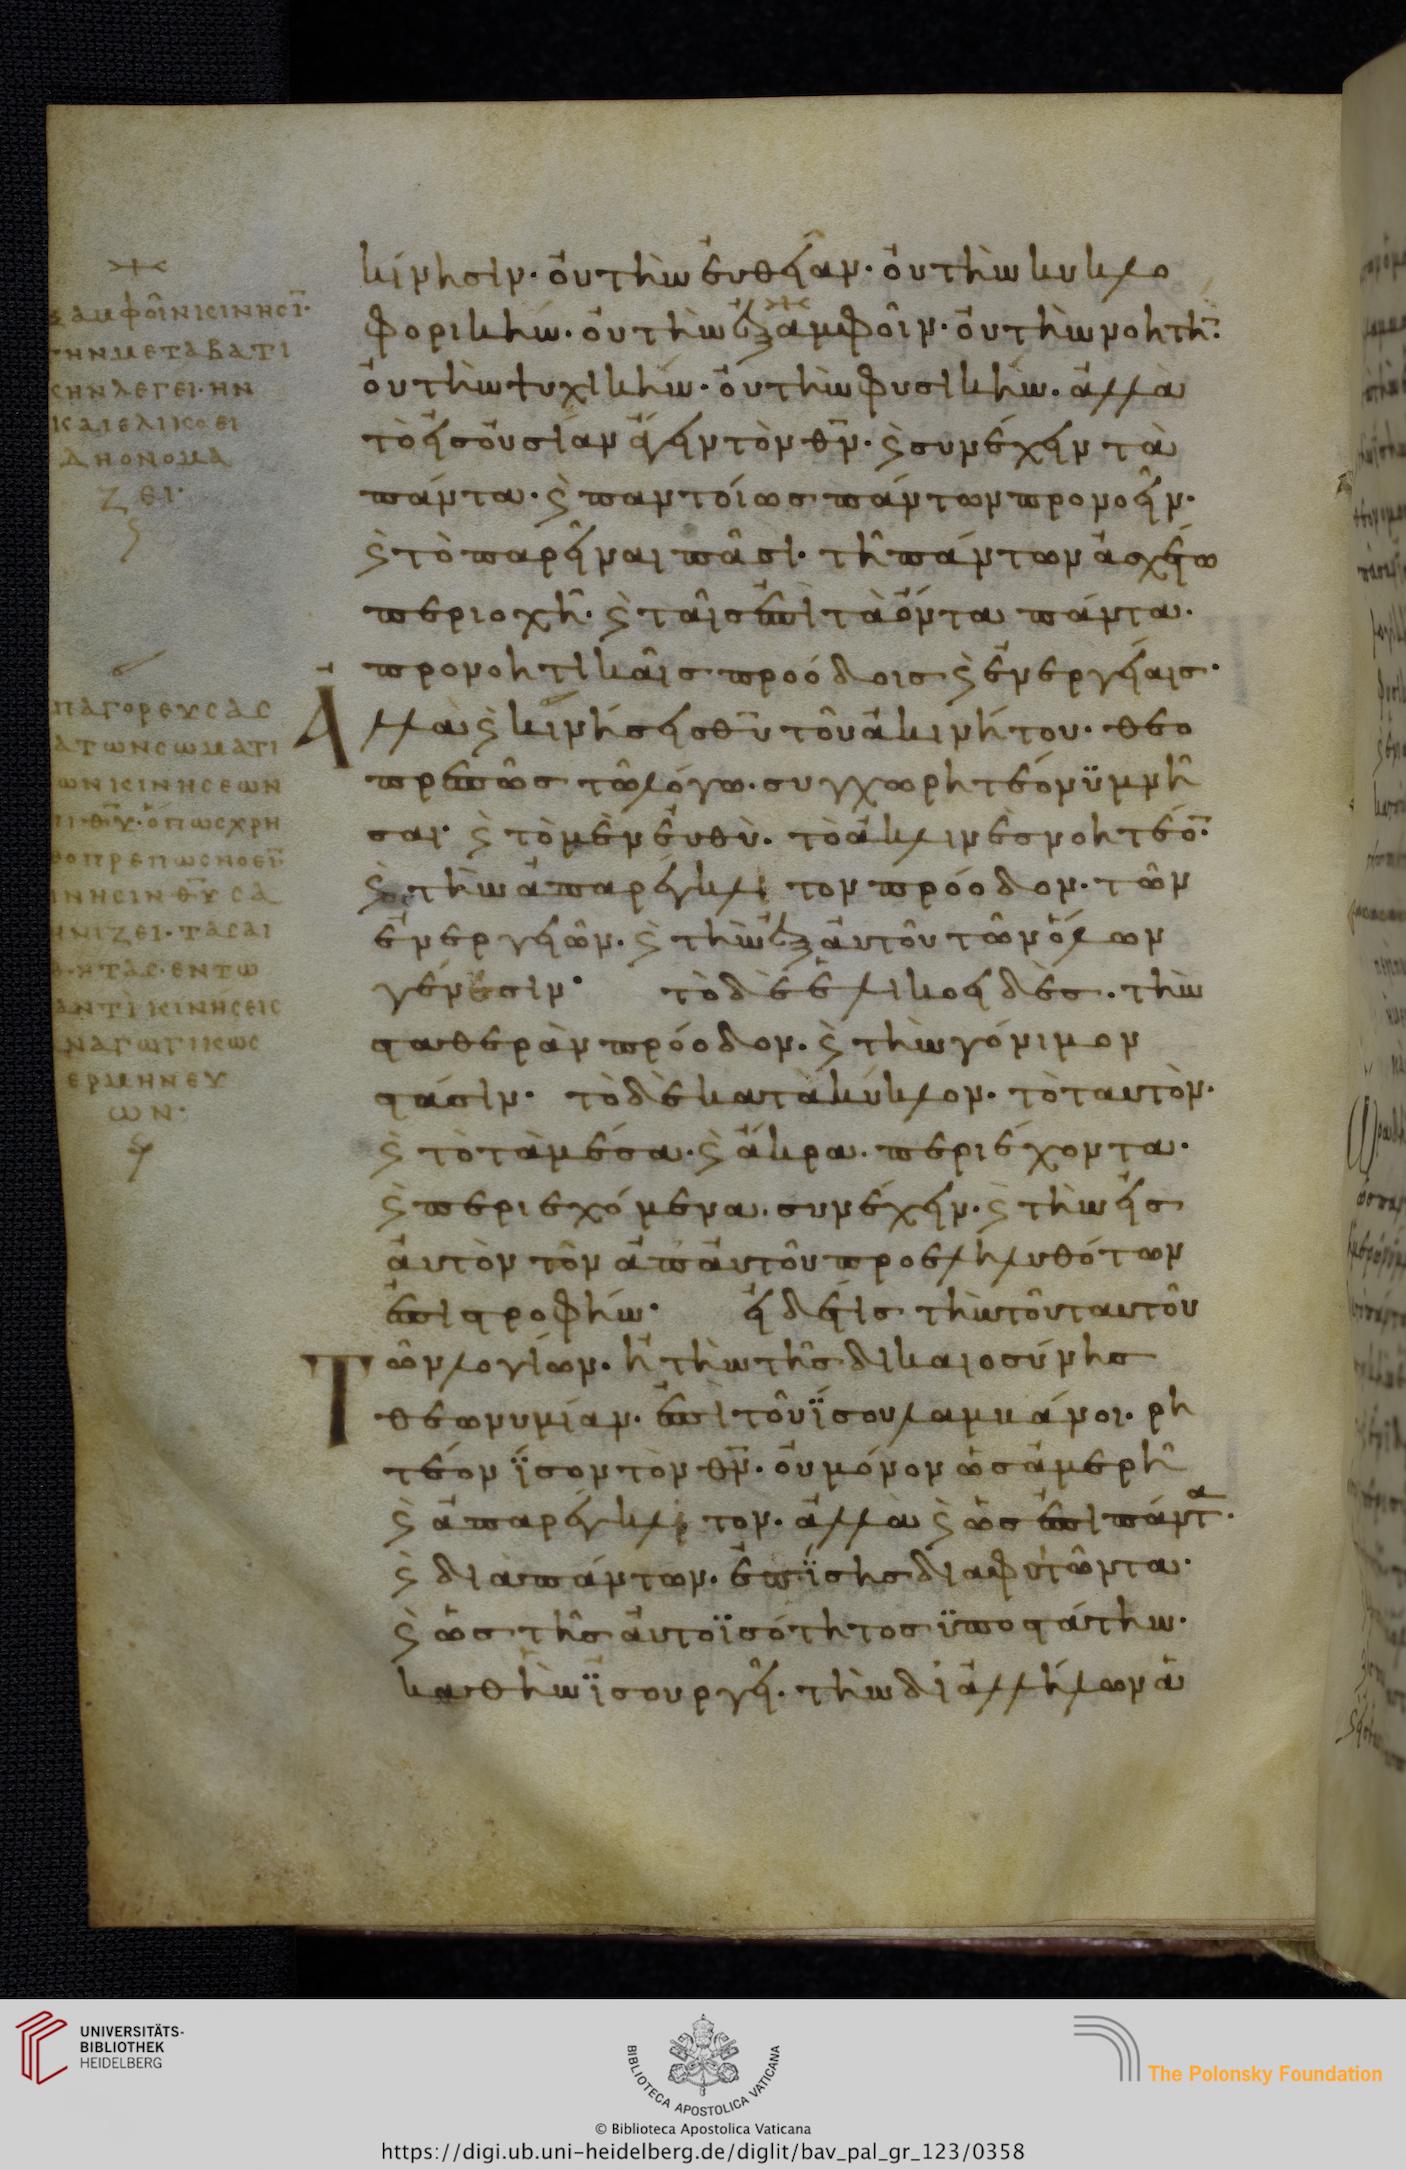 κίνησιν· οὐ τὴν εὐθεῖαν· οὐ τὴν κυκλο
φορικήν· οὐ τὴν ἐξ ἀμφοῖν· οὐ τὴν νοητή̅·
οὐ τὴν ψυχικήν· οὐ τὴν φυσικήν· ἀλλὰ
τὸ εἰς οὐσίαν ἄγειν τὸν θ̅ν̅· ϗ συνέχειν τὰ
πάντα· ϗ παντοίως πάντων προνοεῖν·
ϗ τὸ παρεῖναι πᾶσι· τῆ πάντων ἀσχέτω
περιοχῆ· ϗ ταῖς ἐπὶ τὰ ὄντα πάντα·
προνοητικαῖς προόδοις ϗ ἐνεργείαις·
Ἀλλὰ ϗ κινήσεις θ̅υ̅ τοῦ ἀκινήτου· θεο
πρεπῶς τῶ λόγω· συγχωρητέον ὑμνῆ
σαι· ϗ τὸ μὲν εὐθὺ· τὸ ἀκλινὲς νοητέο̅·
ϗ τὴν ἀπαρέγκλιτον πρόοδον· τῶν
ἐνεργειῶν· ϗ τὴν ἐξ αὐτοῦ τῶν ὅλων
γένεσιν· τὸ δὲ ἑλικοειδὲς· τὴν
σταθερὰν πρόοδον· ϗ τὴν γόνιμον
στάσιν· τὸ δὲ κατὰ κύκλον· τὸ ταυτὸν·
ϗ τὸ τὰ μέσα· ϗ ἄκρα· περιέχοντα·
ϗ περιεχόμενα· συνέχειν· ϗ τὴν εἰς
αὐτὸν τῶν ἀπ' αὐτοῦ προεληλυθότων
ἐπιστροφήν· εἰ δέ τις τὴν τοῦ ταυτοῦ
Τῶν λογίων· ἢ τὴν τῆς δικαιοσύνης
θεωνυμίαν· ἐπὶ τοῦ ἴσου λαμβάνοι· ῥη
τέον ἴσον τὸν θ̅ν̅· οὐ μόνον ὡς ἀμερῆ
ϗ ἀπαρέγκλιτον· ἀλλὰ ϗ ὡς ἐπὶ πάντα·
ϗ διὰ πάντων· ἐπίσης διαφοιτῶντα·
ϗ ὡς τῆς αὐτοϊσότητος ὑποστάτην·
καθ' ἣν ἰσουργεῖ· τὴν δι' ἀλλήλων ἁ
ἀμφοῖν κίνησι̅·
τὴν μεταβατι
κὴν λέγει· ἣν
καὶ ἑλικοει
δῆ ὀνομά
ζει·
ἀπαγορεύσας
σωματι
κινήσεων
ἐπὶ θ̅υ̅· ὅπως χρὴ
θεοπρεπῶς νοεῖ̅
κίνησιν θ̅υ̅ σα
τὰς αἰ
ἐν τῶ
κινήσεις
ἀναγωγικῶς
ἑρμηνεύ
ων·
UNIVERSITÄTS-
BIBLIOTHEK
HEIDELBERG
BIBLIOTECA APOSTOLICA VATICANA
The Polonsky Foundation
© Biblioteca Apostolica Vaticana
https://digi.ub.uni-heidelberg.de/diglit/bav_pal_gr_123/0358